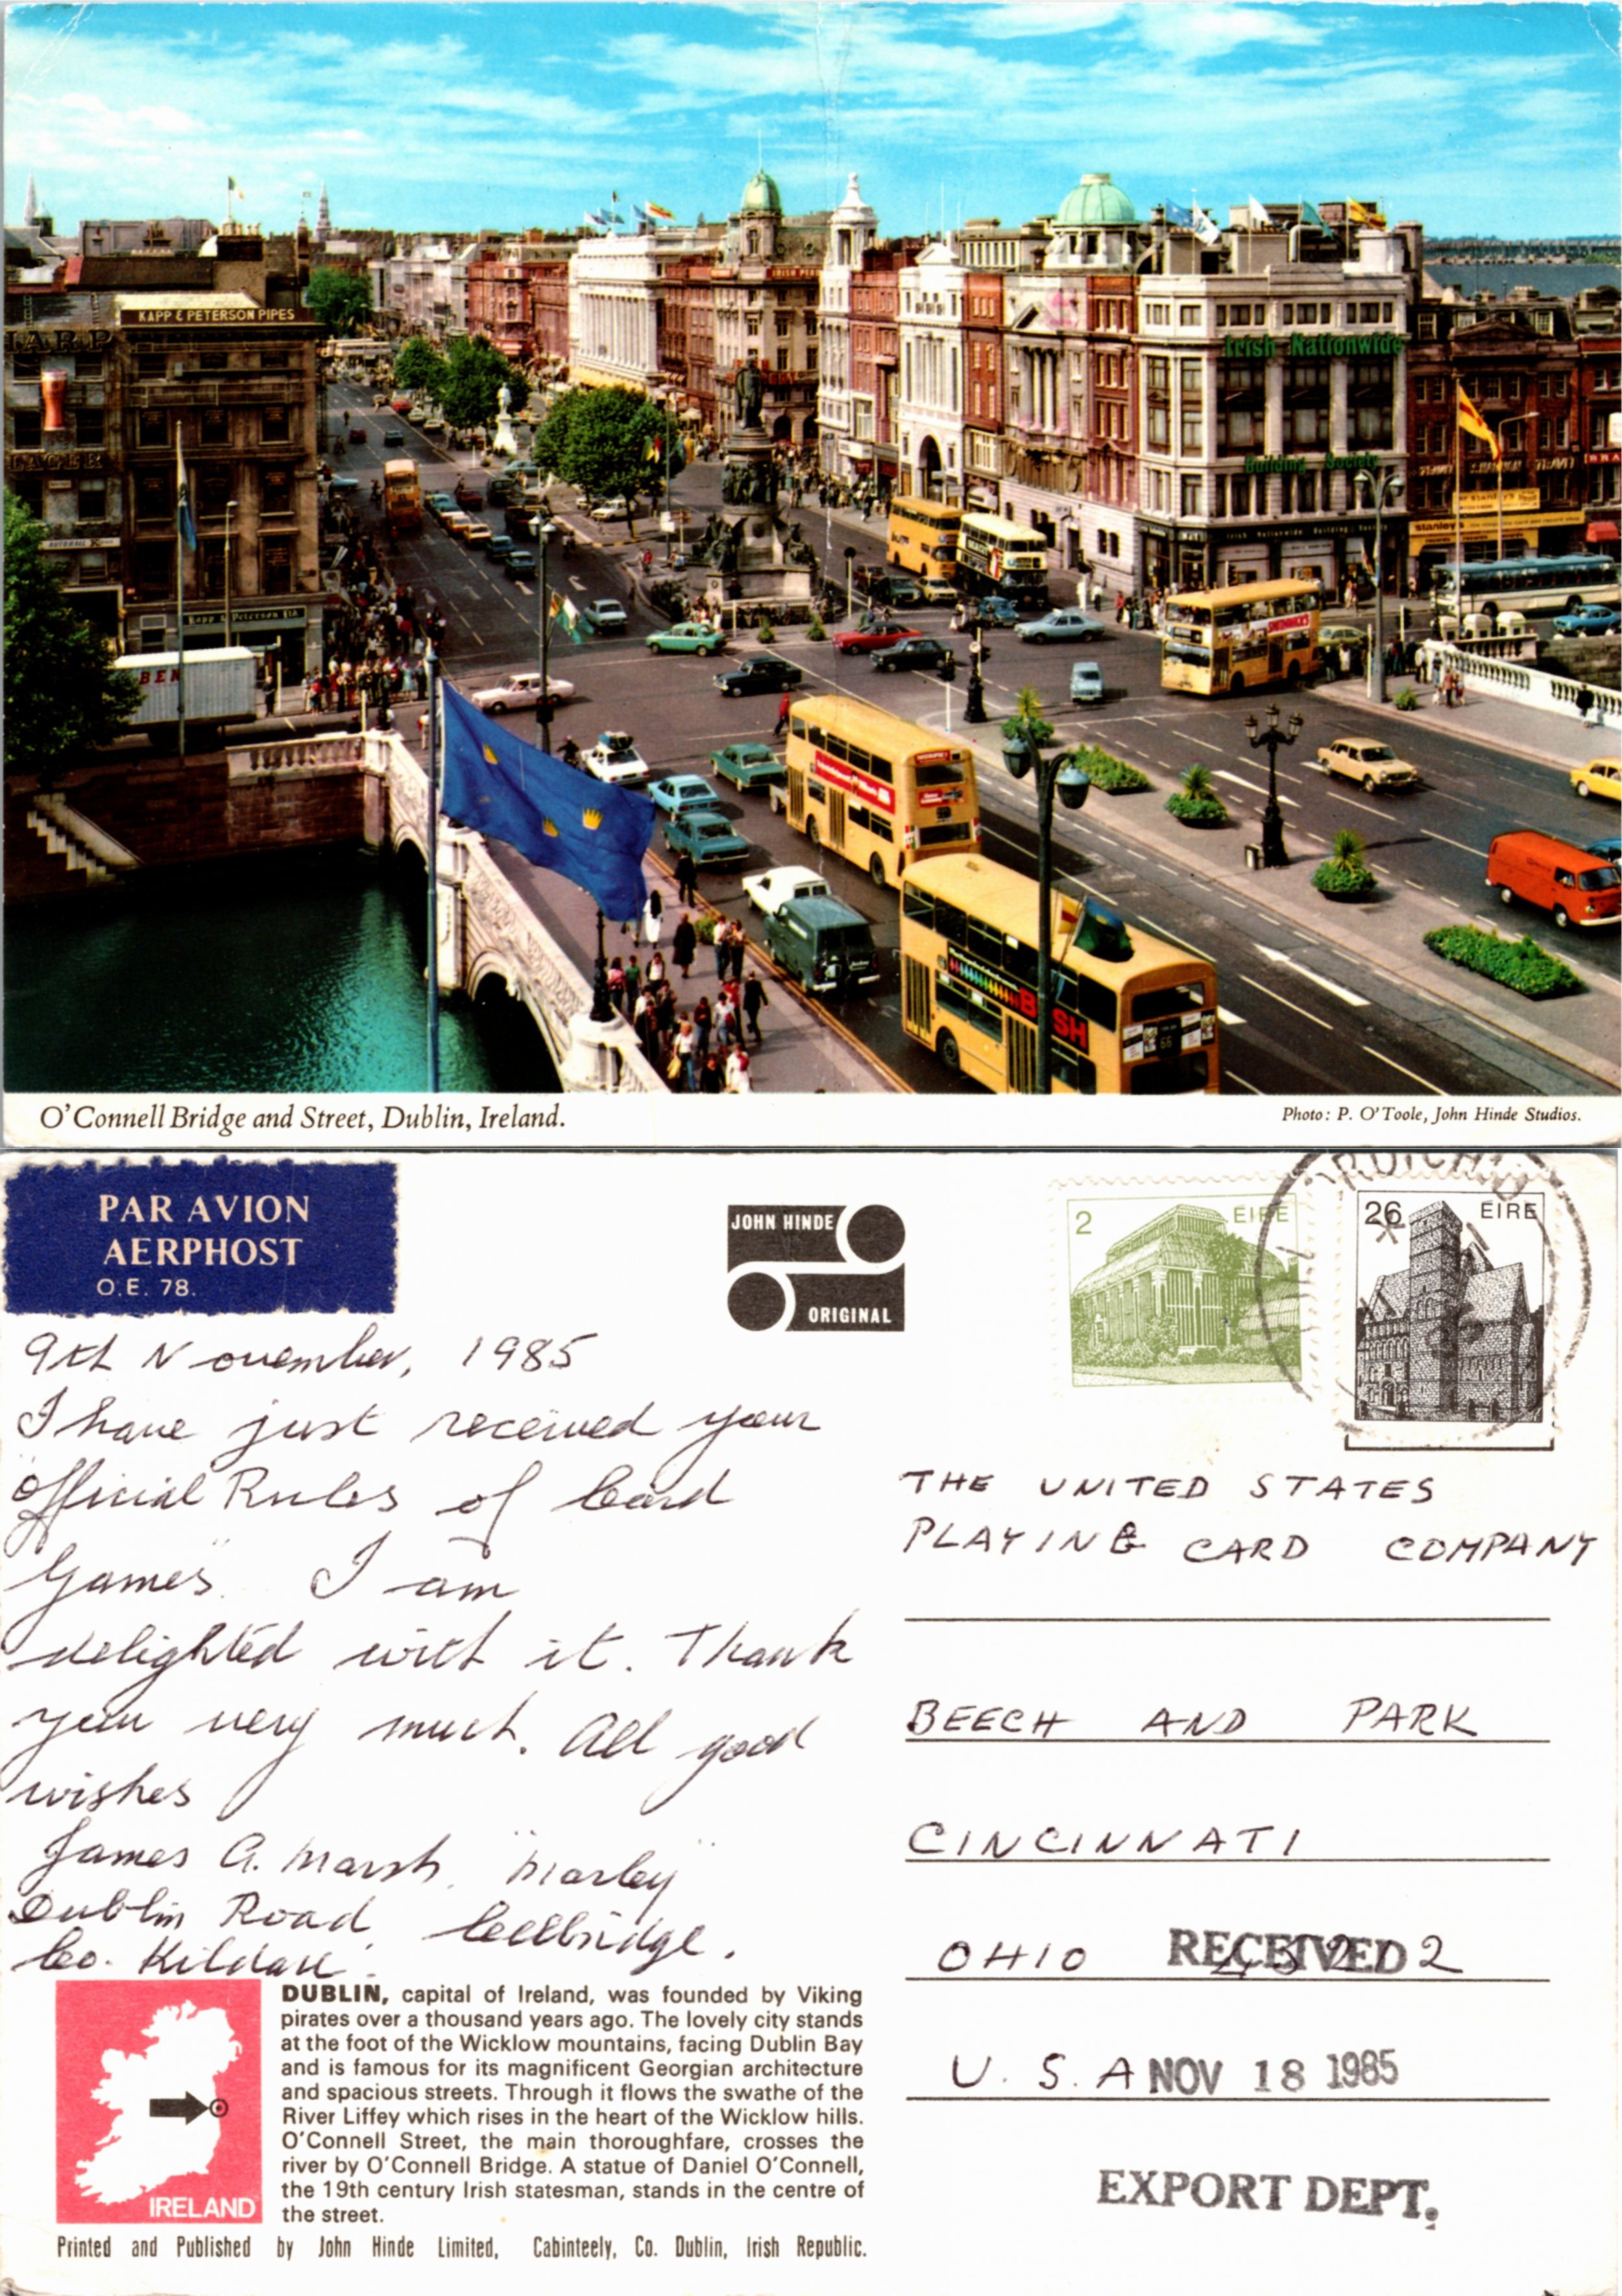 KAPP & PETERSON PIPES
HARP
LAGER
Irish Nationwide
Building Society
Irish Nationwide Building Society
Kapp & Peterson Ltd.
stanleys
BEN
66
O'Connell Bridge and Street, Dublin, Ireland.
Photo: P. O'Toole, John Hinde Studios.
PAR AVION
AERPHOST
O.E. 78.
JOHN HINDE
ORIGINAL
2 EIRE
26 EIRE
9th November, 1985
I have just received your
"Official Rules of Card
Games". I am
delighted with it. Thank
you very much. All good
wishes
James A. Marsh. "Marley"
Dublin Road, Celbridge.
Co. Kildare.
THE UNITED STATES
PLAYING CARD COMPANY
BEECH AND PARK
CINCINNATI
OHIO 45212
RECEIVED
U. S. A
NOV 18 1985
EXPORT DEPT.
IRELAND
DUBLIN, capital of Ireland, was founded by Viking
pirates over a thousand years ago. The lovely city stands
at the foot of the Wicklow mountains, facing Dublin Bay
and is famous for its magnificent Georgian architecture
and spacious streets. Through it flows the swathe of the
River Liffey which rises in the heart of the Wicklow hills.
O'Connell Street, the main thoroughfare, crosses the
river by O'Connell Bridge. A statue of Daniel O'Connell,
the 19th century Irish statesman, stands in the centre of
the street.
Printed and Published by John Hinde Limited, Cabinteely, Co. Dublin, Irish Republic.